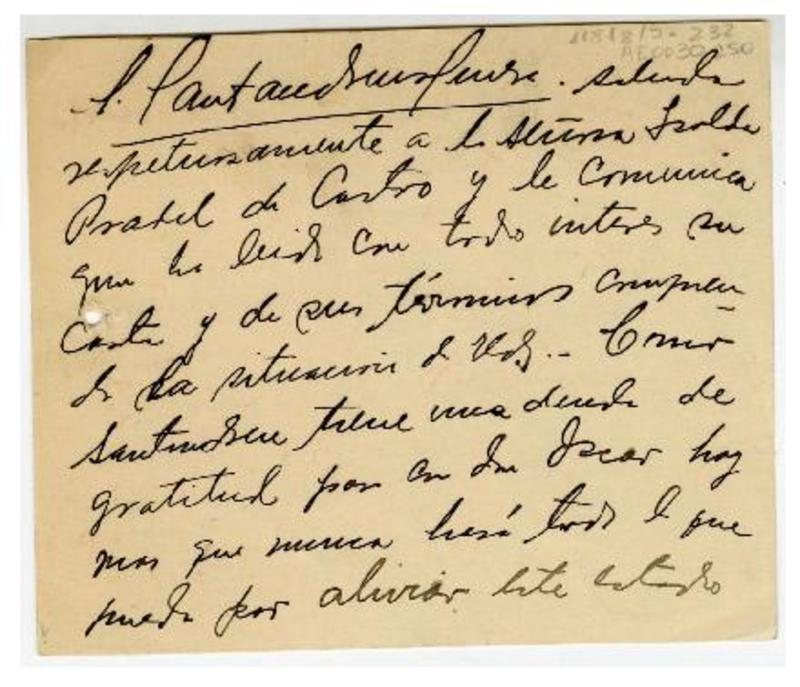 11818/5-232
AE0030250
S. Santandreu Herrera. saluda
respetuosamente a la señora Isolda
Pradel de Castro y le comunica
que ha leido con todo interes su
carta y de sus términos compren
de la situacion de Uds. - Como
Santandreu tiene una deuda de
gratitud para con Don Oscar hoy
mas que nunca hará todo lo que
pueda por aliviar este estado